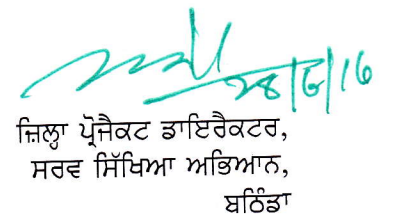 28/6/16
ਜ਼ਿਲ੍ਹਾ ਪ੍ਰੋਜੈਕਟ ਡਾਇਰੈਕਟਰ,
ਸਰਵ ਸਿੱਖਿਆ ਅਭਿਆਨ,
ਬਠਿੰਡਾ